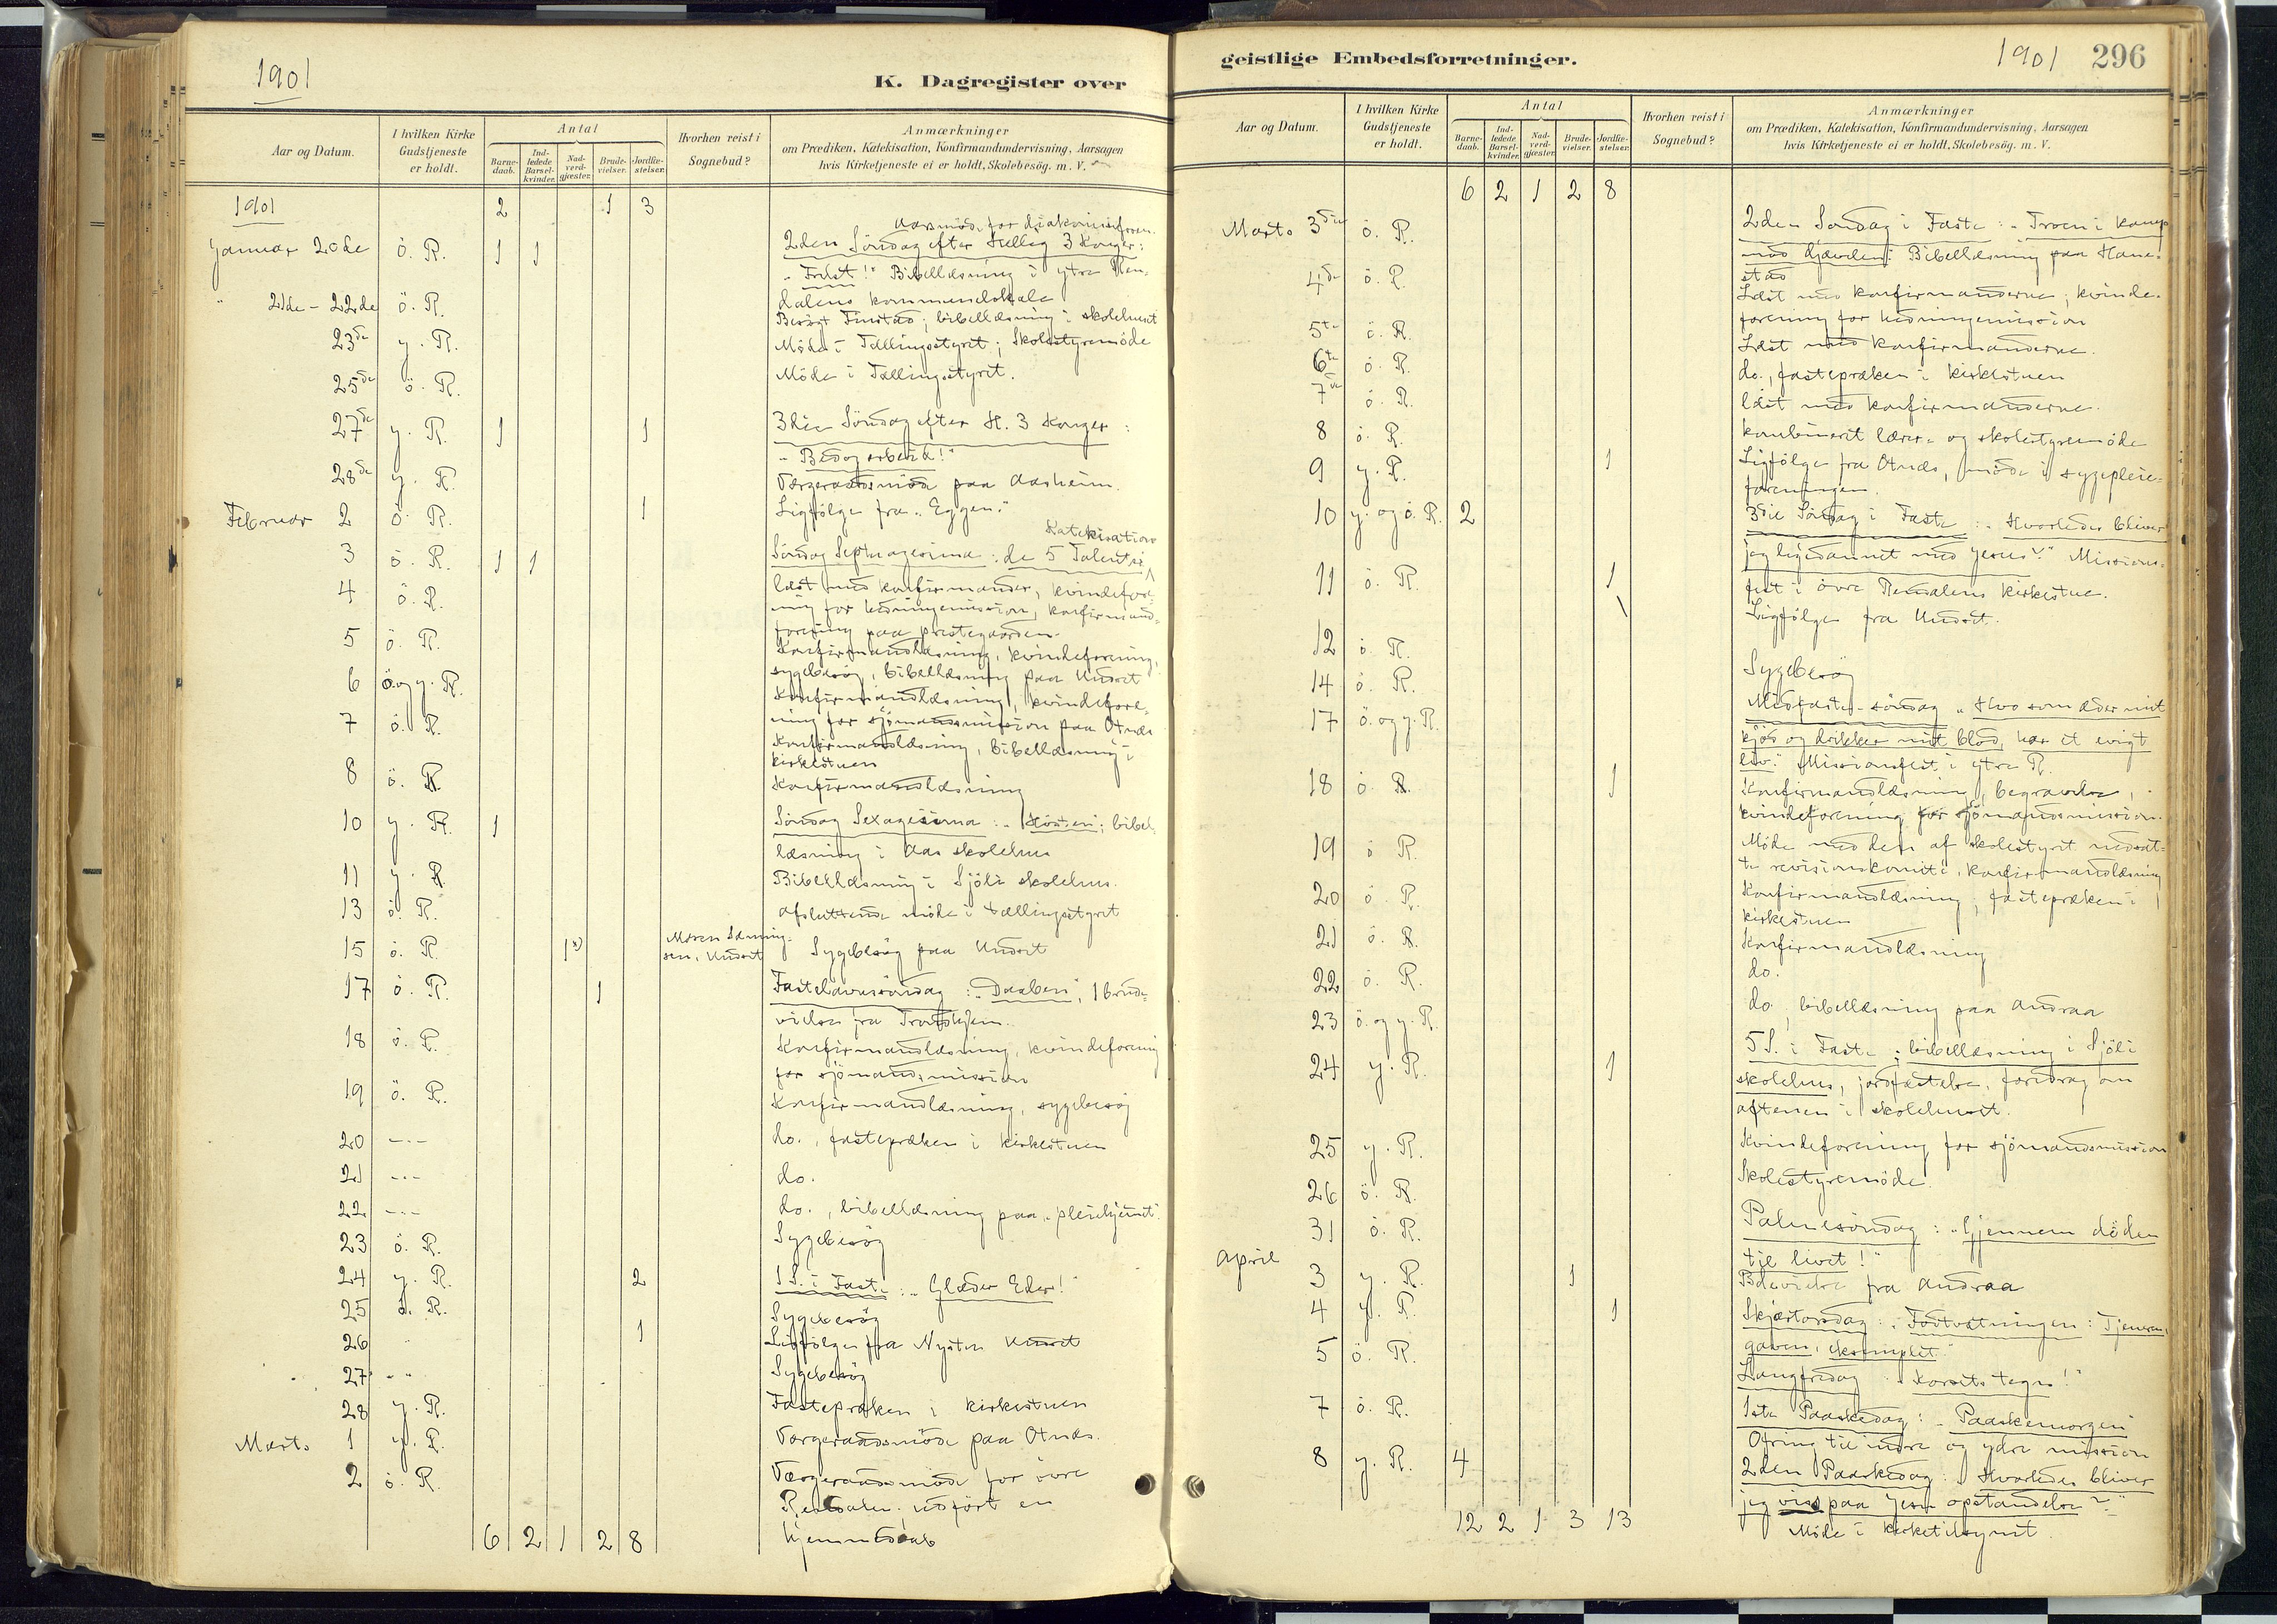 1901
K. Dagregister over
Aar og Datum.
I hvilken Kirke Gudstjeneste er holdt.
Antal
Barnedaab.
Indledede Barselkvinder.
Nadverdgjæster.
Brudevielser.
Jordfæstelser.
Hvorhen reist i Sognebud?
Anmærkninger
om Prædiken, Katekisation, Konfirmandundervisning, Aarsagen
hvis Kirketjeneste ei er holdt, Skolebesög. m. V.
1901 2 1 3
Aarsmöde for diakonisseforen.
Januar 20de ö. R. 1 1 2den Söndag efter Hellig 3 Konger:
"Frelst!" Bibellæsning i ytre Ren-
dalens kommunelokale
" 21de - 22de ö. R. Besögt Finstad; bibellæsning i skolehuset
23de y. R. Möde i Tællingsstyret; Skolestyremöde
25de ö. R. Möde i Tællingsstyret.
27de y. R. 1 1 3die Söndag efter H. 3 Konger:
"Bed og arbeid!"
28de y. R. Værgeraadsmöde paa Aasheim.
Februar 2 ö. R. 1 Ligfölge fra "Eggen."
Katekisation
3 ö. R. 1 1 Söndag Septuagesima: de 5 Talenter
4 ö. R. læst med konfirmander, kvindefore-
ning for hedningemission, konfirmand-
forening paa prestegaarden.
5 ö. R. Konfirmandlæsning, kvindeforening,
sygebesög, bibellæsning paa Undset
6 ö. og y. R. Konfirmandlæsning, kvindefore-
ning for sjömandsmission paa Otnes
7 ö. R. Konfirmandlæsning, bibellæsning i
kirkestuen
8 ö. R. Konfirmandlæsning
10 y. R. 1 Söndag Sexagesima: "Hösten"; bibel-
læsning i Aas skolehus
11 y. R. Bibellæsning i Sjöli skolehus.
13 ö. R. Afsluttende möde i tællingsstyret
15 ö. R. 1 x) Sygebesög paa Undset
17 ö. R. 1 Fastelavnssöndag: "Daaben"; 1 brude-
vielse fra
18 ö. R. Konfirmandlæsning, kvindeforening
for sjömandsmission
19 ö. R. Konfirmandlæsning, sygebesög
20 -"- do., fastepræken i kirkestuen
21 -"- do.
22 -"- do., bibellæsning paa "pleiehjemmet"
23 ö. R. Sygebesög
24 y. R. 2 1 S. i Faste: "Glæder Eder!"
25 ö. R. Sygebesög
26 " 1 Ligfölge fra Nysten Undset
27 " " Sygebesög
28 y. R. Fastepræken i kirkestuen
Marts 1 y. R. Værgeraadsmöde paa Otnes.
2 ö. R. Værgeraadsmöde for övre
Rendalen. udfört en
6 2 1 2 8 hjemmedaab
geistlige Embedsforretninger.
1901 296
Aar og Datum.
I hvilken Kirke Gudstjeneste er holdt.
Antal
Barnedaab.
Indledede Barselkvinder.
Nadverdgjæster.
Brudevielser.
Jordfæstelser.
Hvorhen reist i Sognebud?
Anmærkninger
om Prædiken, Katekisation, Konfirmandundervisning, Aarsagen
hvis Kirketjeneste ei er holdt, Skolebesög. m. V.
6 2 1 2 8
Marts 3die ö. R. 2den Söndag i Faste: "Troen i kamp
med djævelen": Bibellæsning paa Hane-
stad
4de ö. R. Læst med konfirmanderne; kvinde-
forening for hedningemission
5te ö. R. Læst med konfirmanderne.
6te ö. R. do., fastepræken i kirkestuen
7de ö. R. læst med konfirmanderne.
8 ö. R. kombineret lærer- og skolestyremöde
9 y. R. 1 Ligfölge fra Otnes, möde i sygepleie-
foreningen.
10 y. og ö. R. 2 3die Söndag i Faste: "Hvorledes bliver
jeg ligedannet med Jesus?" Missions-
fest i övre Rendalens kirkestue.
11 ö. R. 1 Ligfölge fra Undset.
12 ö. R.
14 ö. R. Sygebesög
17 ö. og y. R. Midfaste-söndag "Hvo som æder mit
kjöd og drikker mit blod, har et evigt
liv." Missionsfest i ytre R.
18 ö. R. 1 Konfirmandlæsning, begravelse,
kvindeforening for sjömandsmission.
19 ö R. Möde med den af skolestyret nedsat-
te revisionskomité, konfirmandlæsning
20 ö R. Konfirmandlæsning, fastepræken i
kirkestuen
21 ö. R. Konfirmandlæsning
22 ö. R. do.
23 ö. og y. R. do., bibellæsning paa Andraa
24 y. R. 1 5 S. i Faste; bibellæsning i Sjöli
skolehus, jordfæstelse, foredrag om
aftenen i skolehuset.
25 y. R. Kvindeforening for sjömandsmission
26 ö. R. Skolestyremöde.
31 ö. R. Palmesöndag: "Gjennem döden
til livet!"
April 3 y. R. 1 Bdevielse fra Andraa
4 y. R. 1 Skjærtorsdag: "Fodtvætningen: Tjeneren,
gaven, eksemplet."
5 ö. R. Langfredag "Korsets tegn!"
7 ö. R. 1ste Paaskedag: "Paaskemorgen"
Ofring til indre og ydre mission
8 y. R. 4 2den Paaskedag: "Hvorledes bliver
jeg viss paa Jesu opstandelse?"
12 2 1 3 13 Möde i kirketilsynet.